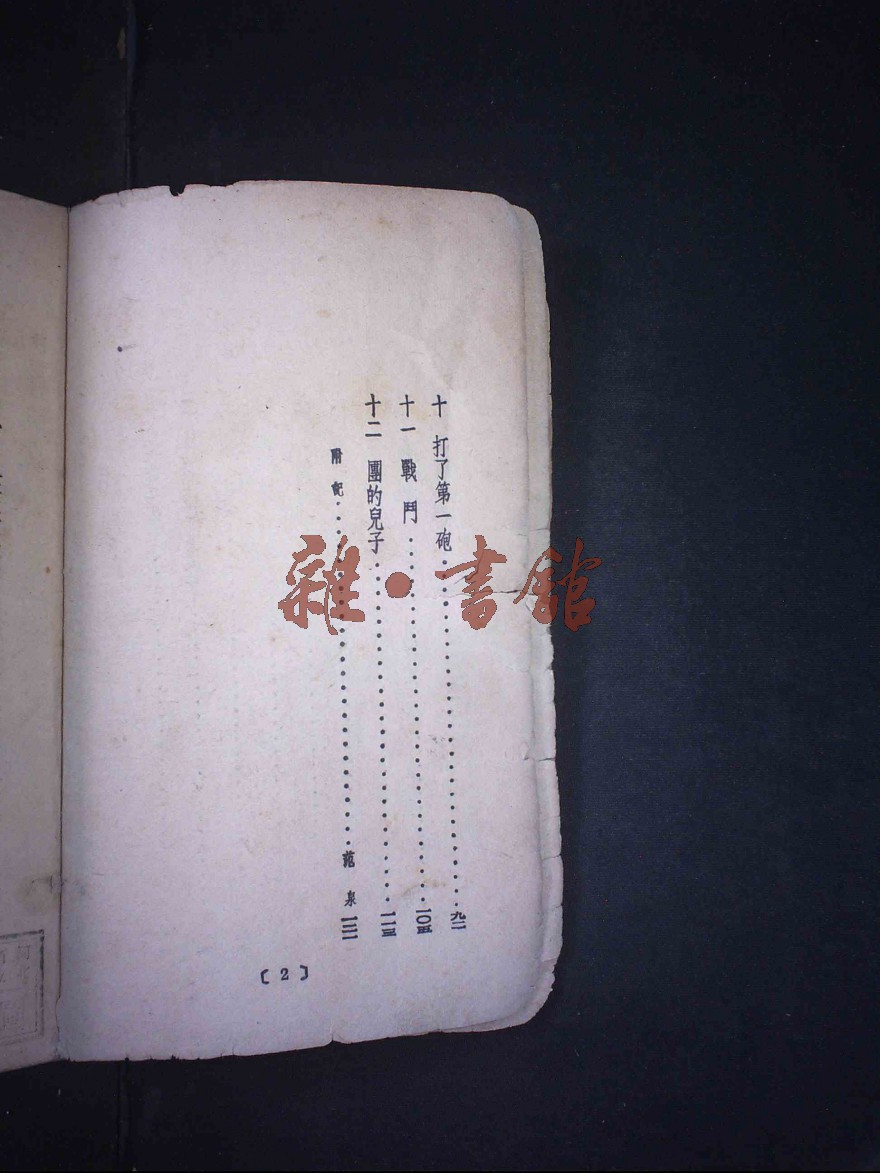 十　打了第一砲……………………九二
十一　戰鬥……………………一〇五
十二　團的兒子……………………一一三
附記……………………范泉
〔2〕
雜·書館